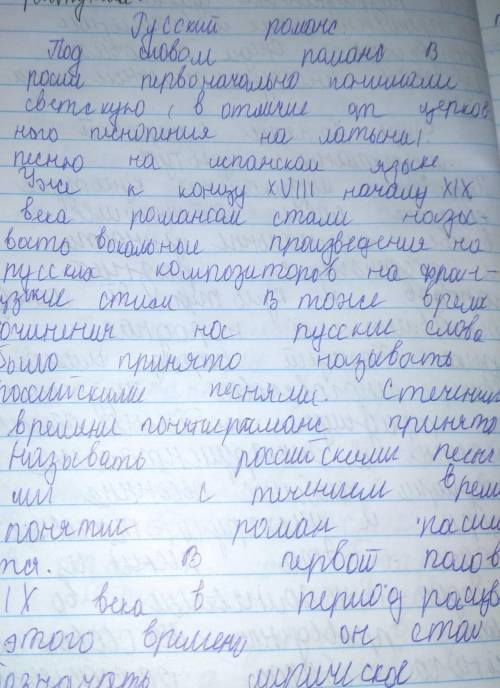 Русский романс
Под словом романс в
росии первоначально понимали
светскую, в отличие от церков
ного песнопения на латыни,
песню на испанском языке
Уже к концу XVIII началу XIX
века романсам стали назы-
вость вокальные произведения на
русских композиторов на фран-
узские стихи В тоже время
очинения нос русские слова
было принято называть
российскими песнями. Стечении
времени понятие романс принято
называть российскими песня
ми с течением време
понятие роман расши
тся. В первой полов
IX века в период расцв
этого времени он стал
означать лирическое